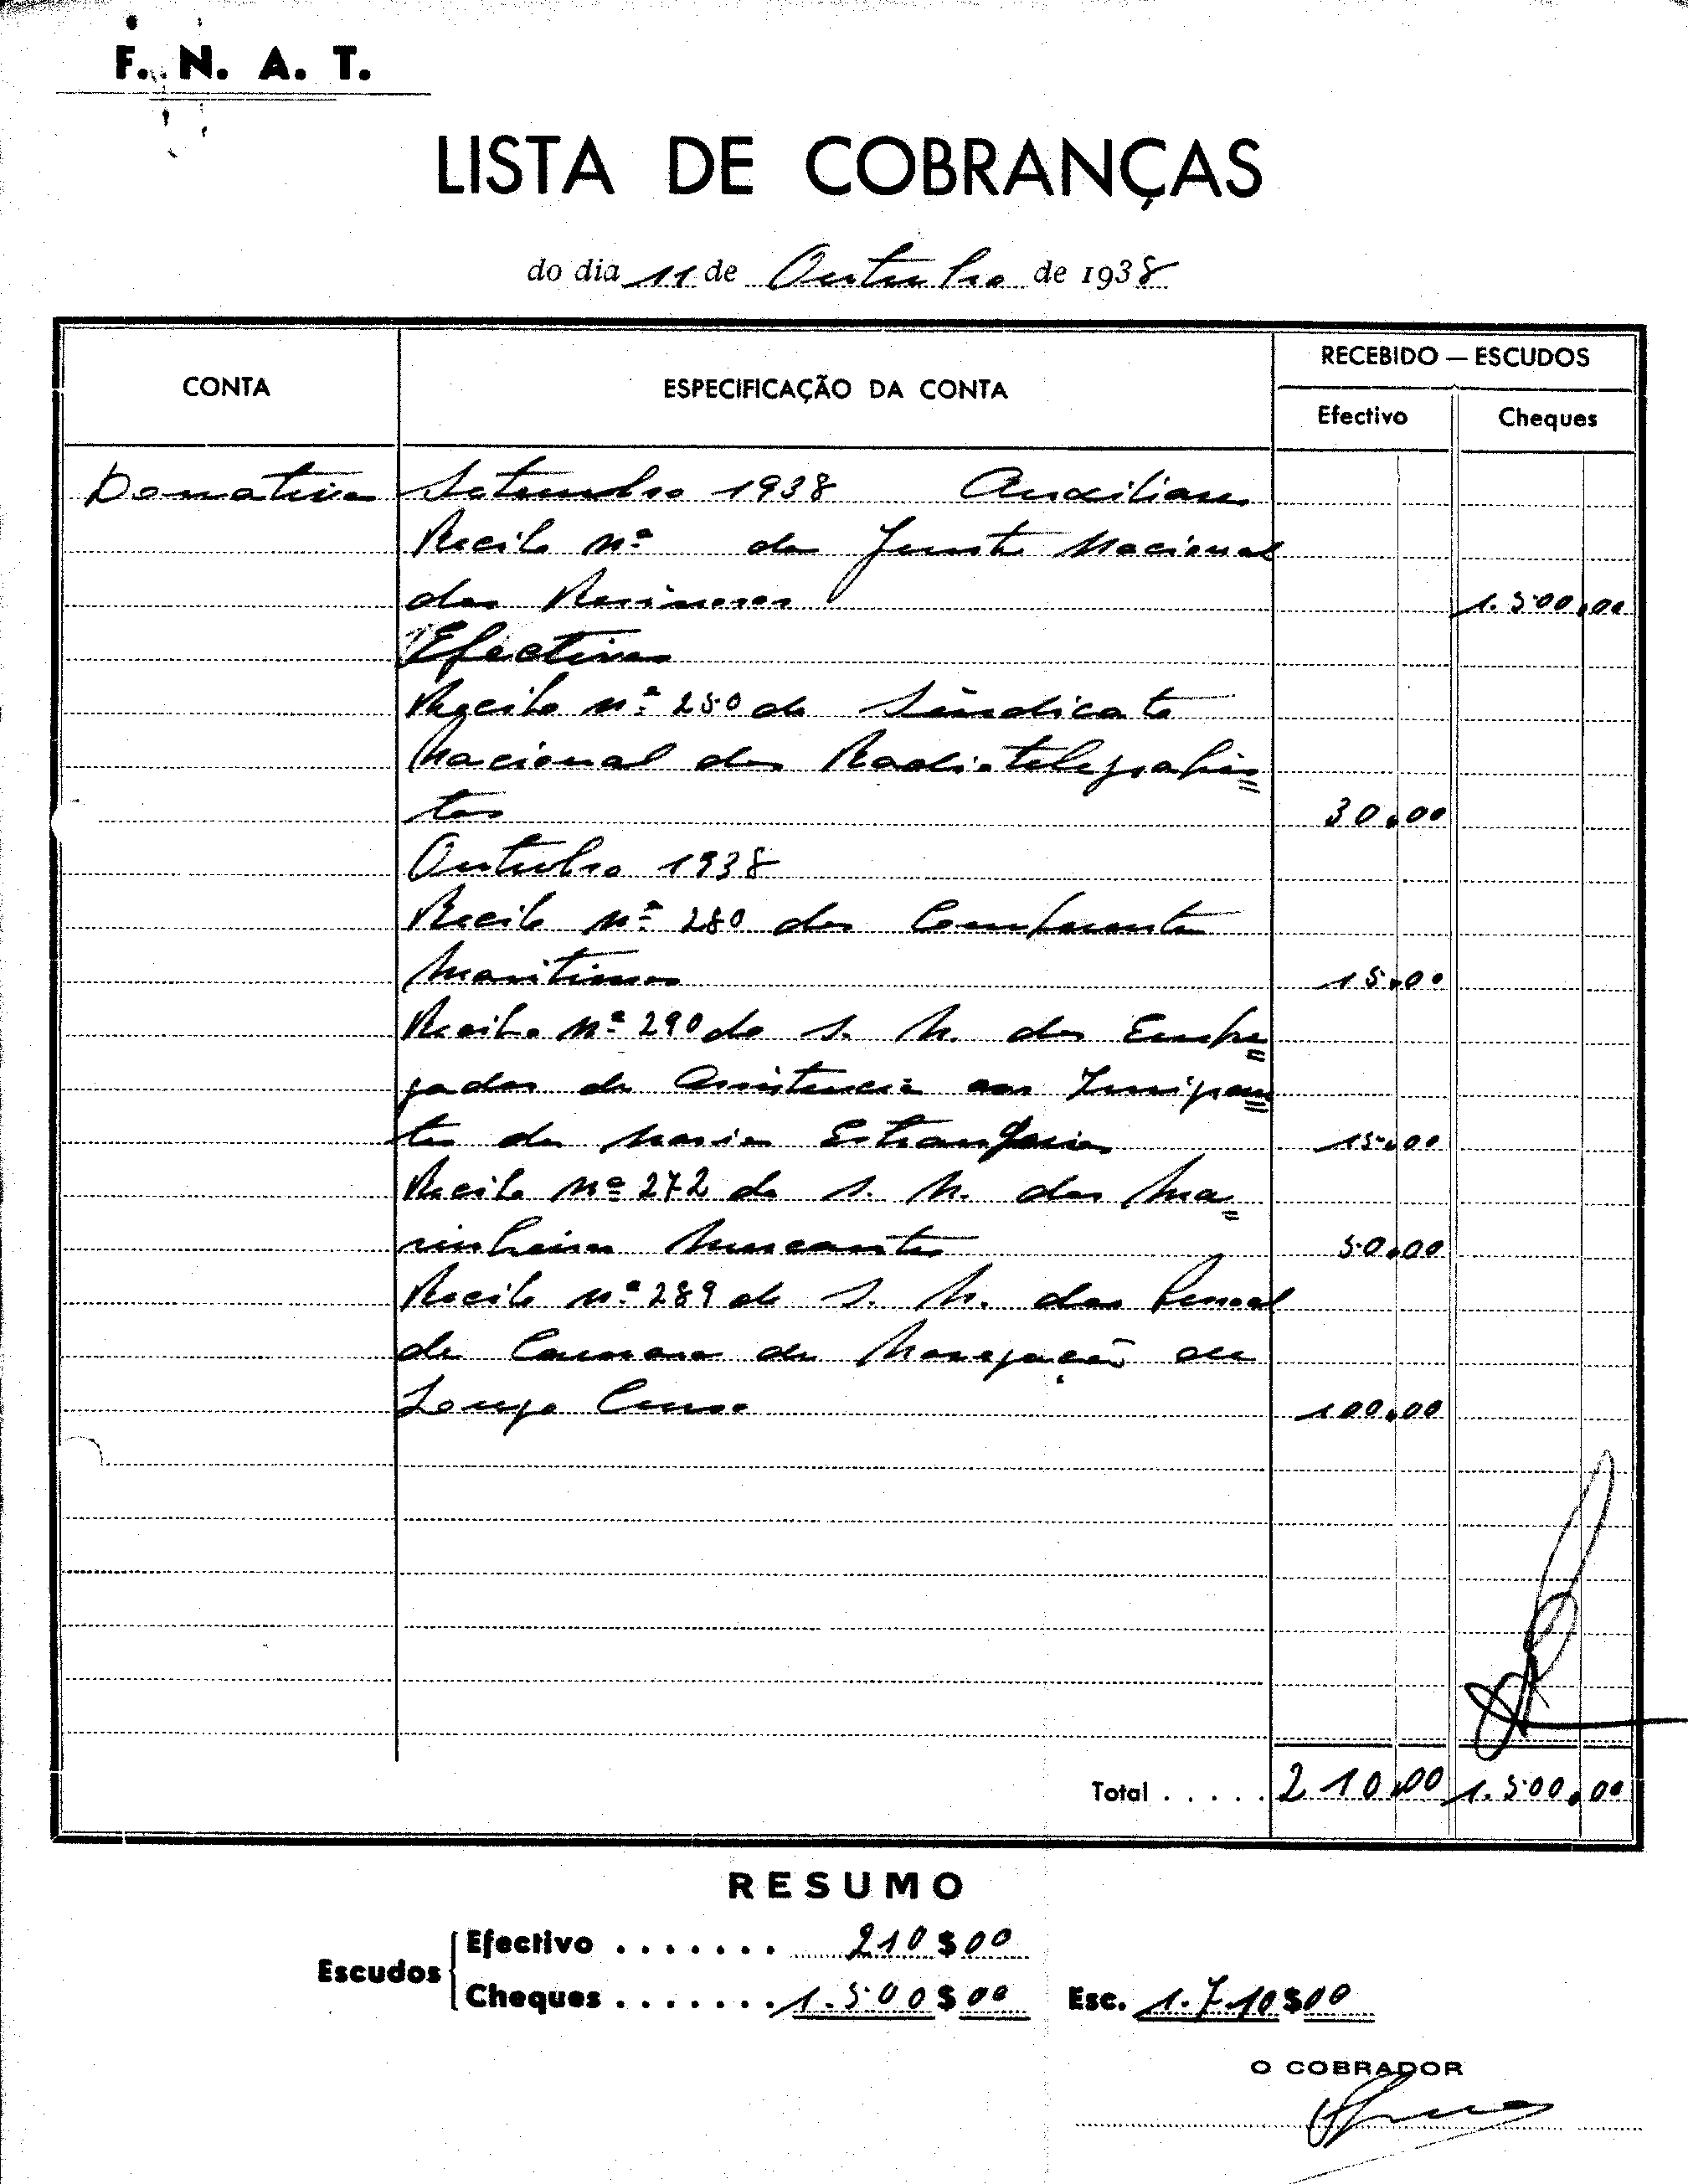 F. N. A. T.
LISTA DE COBRANÇAS
do dia 11 de Outubro de 1938
CONTA
ESPECIFICAÇÃO DA CONTA
RECEBIDO — ESCUDOS
Efectivo
Cheques
Donativos Setembro 1938 Auxiliares
Recibo nº da Junta Nacional
dos Resinosos 1.500,00
Efectivos
Recibo nº 250 do Sindicato
Nacional dos Radiotelegrafis=
tas 30,00
Outubro 1938
Recibo nº 280 dos
Maritimos 15,00
Recibo nº 290 do S. N. dos Empre=
gados de Assistencia aos Emigran=
tes da Navios Estrangeiros 15,00
Recibo nº 272 do S. N. dos Ma=
rinheiros Mercantes 50,00
Recibo nº 289 do S. N. dos Pessoal
de Camaras da Navegação de
Longo Curso 100,00
Total . . . . . 210,00 1.500,00
RESUMO
Escudos
Efectivo . . . . . . . 210$00
Cheques . . . . . . . 1.500$00 Esc. 1.710$00
O COBRADOR